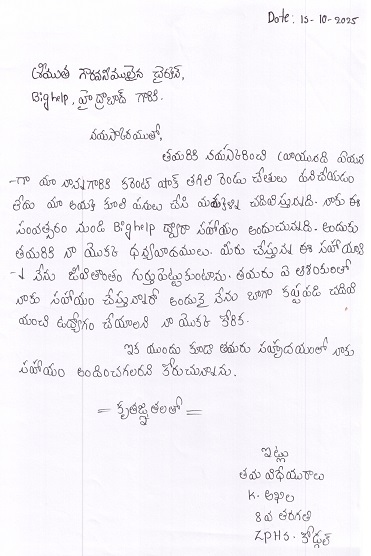 Date: 15-10-2025
శ్రీయుత గౌరవనీయులైన డైరెక్టర్,
Bighelp, హైద్రాబాద్ గారికి.
నమస్కారములతో,
తమరికి నమస్కరించి వ్రాయునది ఏమన
-గా మా నాన్నగారికి కరెంట్ షాక్ తగిలి రెండు చేతులు పనిచేయడం
లేదు మా అమ్మ కూలి పనులు చేసి మమ్మల్ని చదివిస్తున్నది. నాకు ఈ
సంవత్సరం నుండి Bighelp ద్వారా సహాయం అందుచున్నది. అందుకు
తమరికి నా యొక్క ధన్యవాదములు. మీరు చేస్తున్న ఈ సహాయాన్ని
నేను జీవితాంతం గుర్తుపెట్టుకుంటాను. తమరు ఏ ఆశయంతో
నాకు సహాయం చేస్తున్నారో అందుకై నేను బాగా కష్టపడి చదివి
మంచి ఉద్యోగం చేయాలని నా యొక్క కోరిక.
ఇక ముందు కూడా తమరు సహృదయంతో నాకు
సహాయం అందించగలరని కోరుచున్నాను.
= కృతజ్ఞతలతో =
ఇట్లు
తమ విధేయురాలు
K. అఖిల
8వ తరగతి
ZPHS.